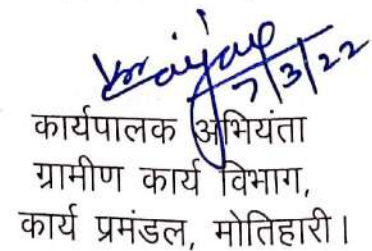 7/3/22
कार्यपालक अभियंता
ग्रामीण कार्य विभाग,
कार्य प्रमंडल, मोतिहारी।